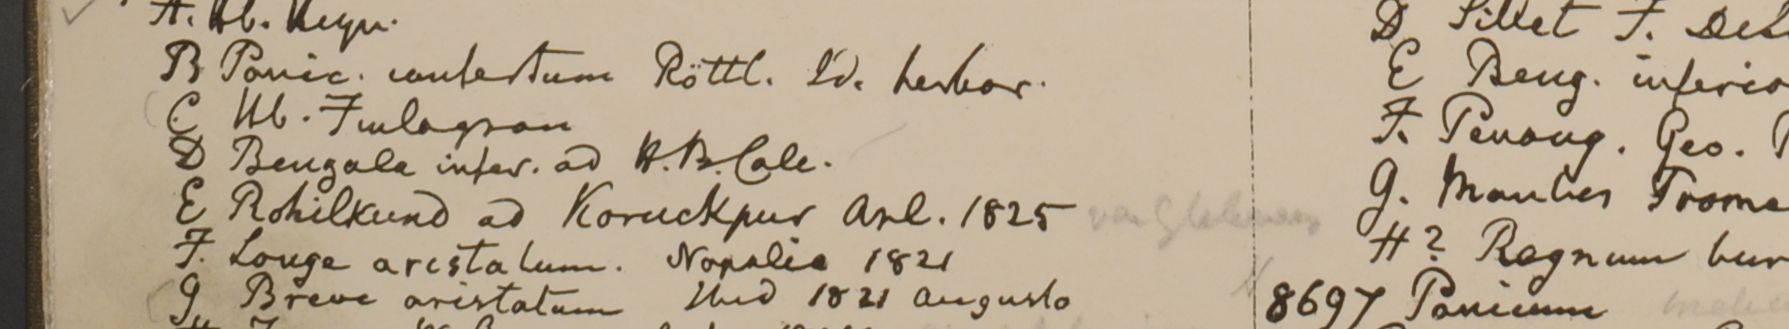 A. Hb. Heyn.
B Panic. confertum Röttl. in herbar.
C Hb. Finlayson
D Bengala infer. ad H.B. Calc.
E Rohilkund ad Koruckpur Anl. 1825
F. Longe aristatum. Napalia 1821
G Breve aristatum Ibid 1821 Augusto
D Sillet F. DeS
E Beng. inferio
F. Penang. Geo. P
G. Manlies Prome
H? Regnum bur
8697 Panicum